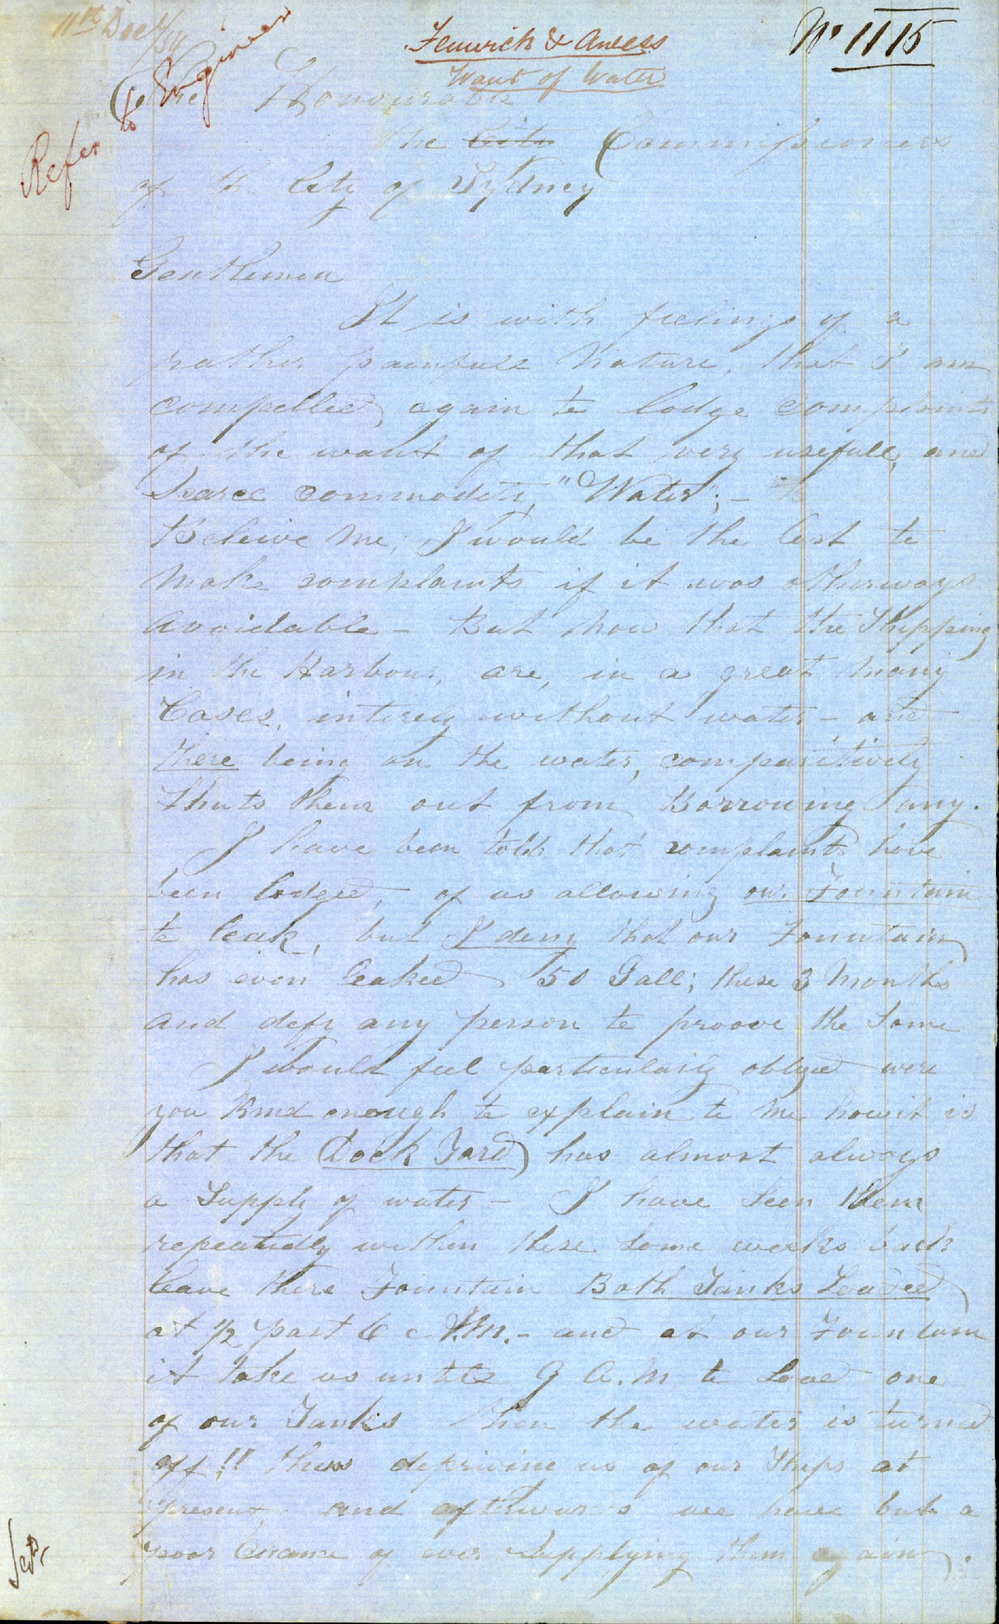 11th Dec/54
Refer to Engineer
Fenwick & Ansels
Want of Water
No 1115
To the Honourable
The City Commissioners
of the City of Sydney
Gentlemen
It is with feelings of a
rather painfull nature, that I am
compelled again to lodge complaints
of the want of that very usefull, and
Scarce commodity, "Water"; -
Beleive me, I would be the last to
make complaints if it was otherways
avoidable - But now that the Shipping
in the Harbour, are, in a great many
Cases, intirely without water - and
there being on the water, comparitively
Shuts them out from Borrowing any.
I have been told that complaints have
been lodged, - of us allowing our Fountain
to leak, but I deny that our Fountain
has even leaked 50 Gall; these 3 Months
and defy any person to proove the Same
I would feel particularly obliged were
you kind enough to explain to me how it is
that the (Dock Yard) has almost always
a Supply of water - I have Seen them
repeatedly within these Some weeks back
leave there Fountain Both Tanks Loaded
at 1/2 past 6 A.M. - and at our Fountain
it take us untill 9 A.M to Load one
of our Tanks then the water is turned
off!! thus depriving us of our Ships at
Present, and afterwards we have but a
poor Chance of ever Supplying them again.